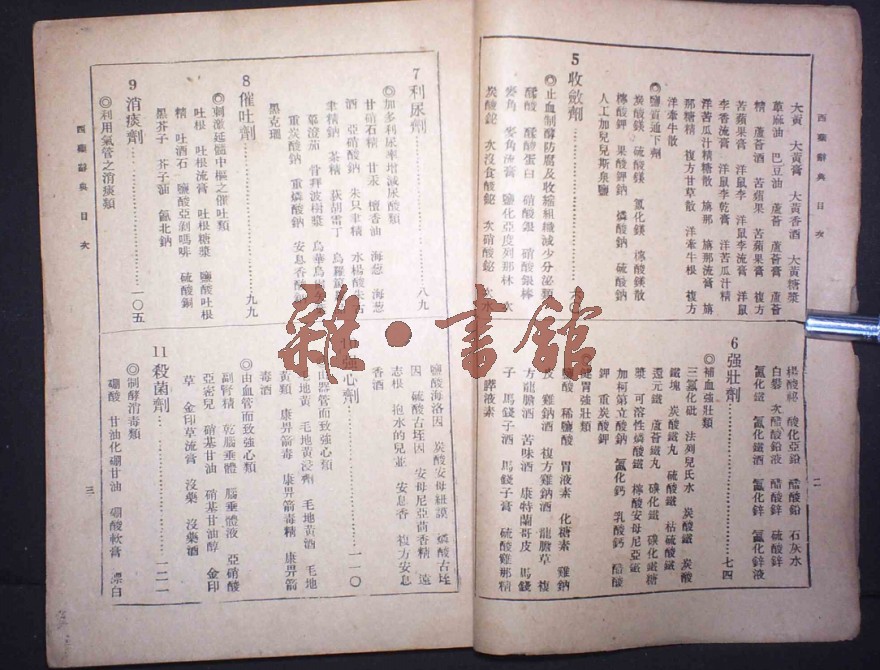 西藥辭典 目次
二
大黃 大黃膏 大黃香酒 大黃糖漿
萆麻油 巴豆油 蘆薈 蘆薈膏 蘆薈
精 蘆薈酒 苦蘋果 苦蘋果膏 複方
苦蘋果膏 洋鼠李 洋鼠李流膏 洋鼠
李香流膏 洋鼠李乾膏 洋苦瓜汁精
洋苦瓜汁精糖散 旃那 旃那流膏 旃
那糖精 複方甘草散 洋牽牛根 複方
洋牽牛散
◎鹽質通下劑
炭酸鎂 硫酸鎂 氯化鎂 檸酸鎂散
檸酸鉀 果酸鉀鈉 燐酸鈉 硫酸鈉
人工加兒兒斯泉鹽
5 收斂劑
◎止血制酵防腐及收縮組織減少分泌類
鞣酸 鞣酸蛋白 硝酸銀 硝酸銀棒
麥角 麥角流膏 鹽化亞度列那林 次
炭酸鉍 次沒食酸鉍 次硝酸鉍
楊酸鉍 酸化亞鉛 醋酸鉛 石灰水
白礬 次醋酸鉛液 醋酸鋅 硫酸鋅
氯化鐵 氯化鐵酒 氯化鋅 氯化鋅液
6 强壯劑 七四
◎補血強壯類
三氯化砒 法列兒氏水 炭酸鐵 炭酸
鐵塊 炭酸鐵丸 硫酸鐵 枯硫酸鐵
還元鐵 蘆薈鐵丸 碘化鐵 碘化鐵糖
漿 可溶性燐酸鐵 檸酸安母尼亞鐵
加柯第立酸鈉 氯化鈣 乳酸鈣 醋酸
鉀 重炭酸鉀
健胃強壯類
鹽酸 稀鹽酸 胃液素 化糖素 雞鈉
皮 雞鈉酒 複方雞鈉酒 龍膽草 複
方龍膽酒 苦味酒 康特蘭哥皮 馬錢
子 馬錢子酒 馬錢子膏 硫酸雞那精
膵液素
7 利尿劑 八九
◎加多利尿率增減尿酸類
甘硝石精 甘汞 檀香油 海葱 海葱
酒 亞硝酸鈉 朱只聿精 水楊酸朱只
聿精鈉 茶精 荻胡雷丁 烏羅
蓽澄茄 骨拜波樹漿 烏華烏
重炭酸鈉 重燐酸鈉 安息香酸
黑克珊
8 催吐劑 九九
◎刺激延髓中樞之催吐類
吐根 吐根流膏 吐根糖漿 鹽酸吐根
精 吐酒石 鹽酸亞剝嗎啡 硫酸銅
黑芥子 芥子油 氯北鈉
9 消痰劑 一〇五
◎利用氣管之消痰類
西藥辭典 目次
三
鹽酸海洛因 炭酸安母紐謨 燐酸古垤
因 硫酸古垤因 安母尼亞茴香精 遠
志根 抱水的兒並 安息香 複方安息
香酒
強心劑 一一〇
器管而致強心類
毛地黃 毛地黃浸劑 毛地黃酒 毛地
黃類 康昇箭毒 康昇箭毒精 康昇箭
毒酒
◎由血管而致強心類
副腎精 乾腦垂體 腦垂體液 亞硝酸
亞密兒 硝基甘油 硝基甘油醇 金印
草 金印草流膏 沒藥 沒藥酒
11 殺菌劑 一二一
◎制酵消毒類
硼酸 甘油化硼甘油 硼酸軟膏 漂白
雜·書館